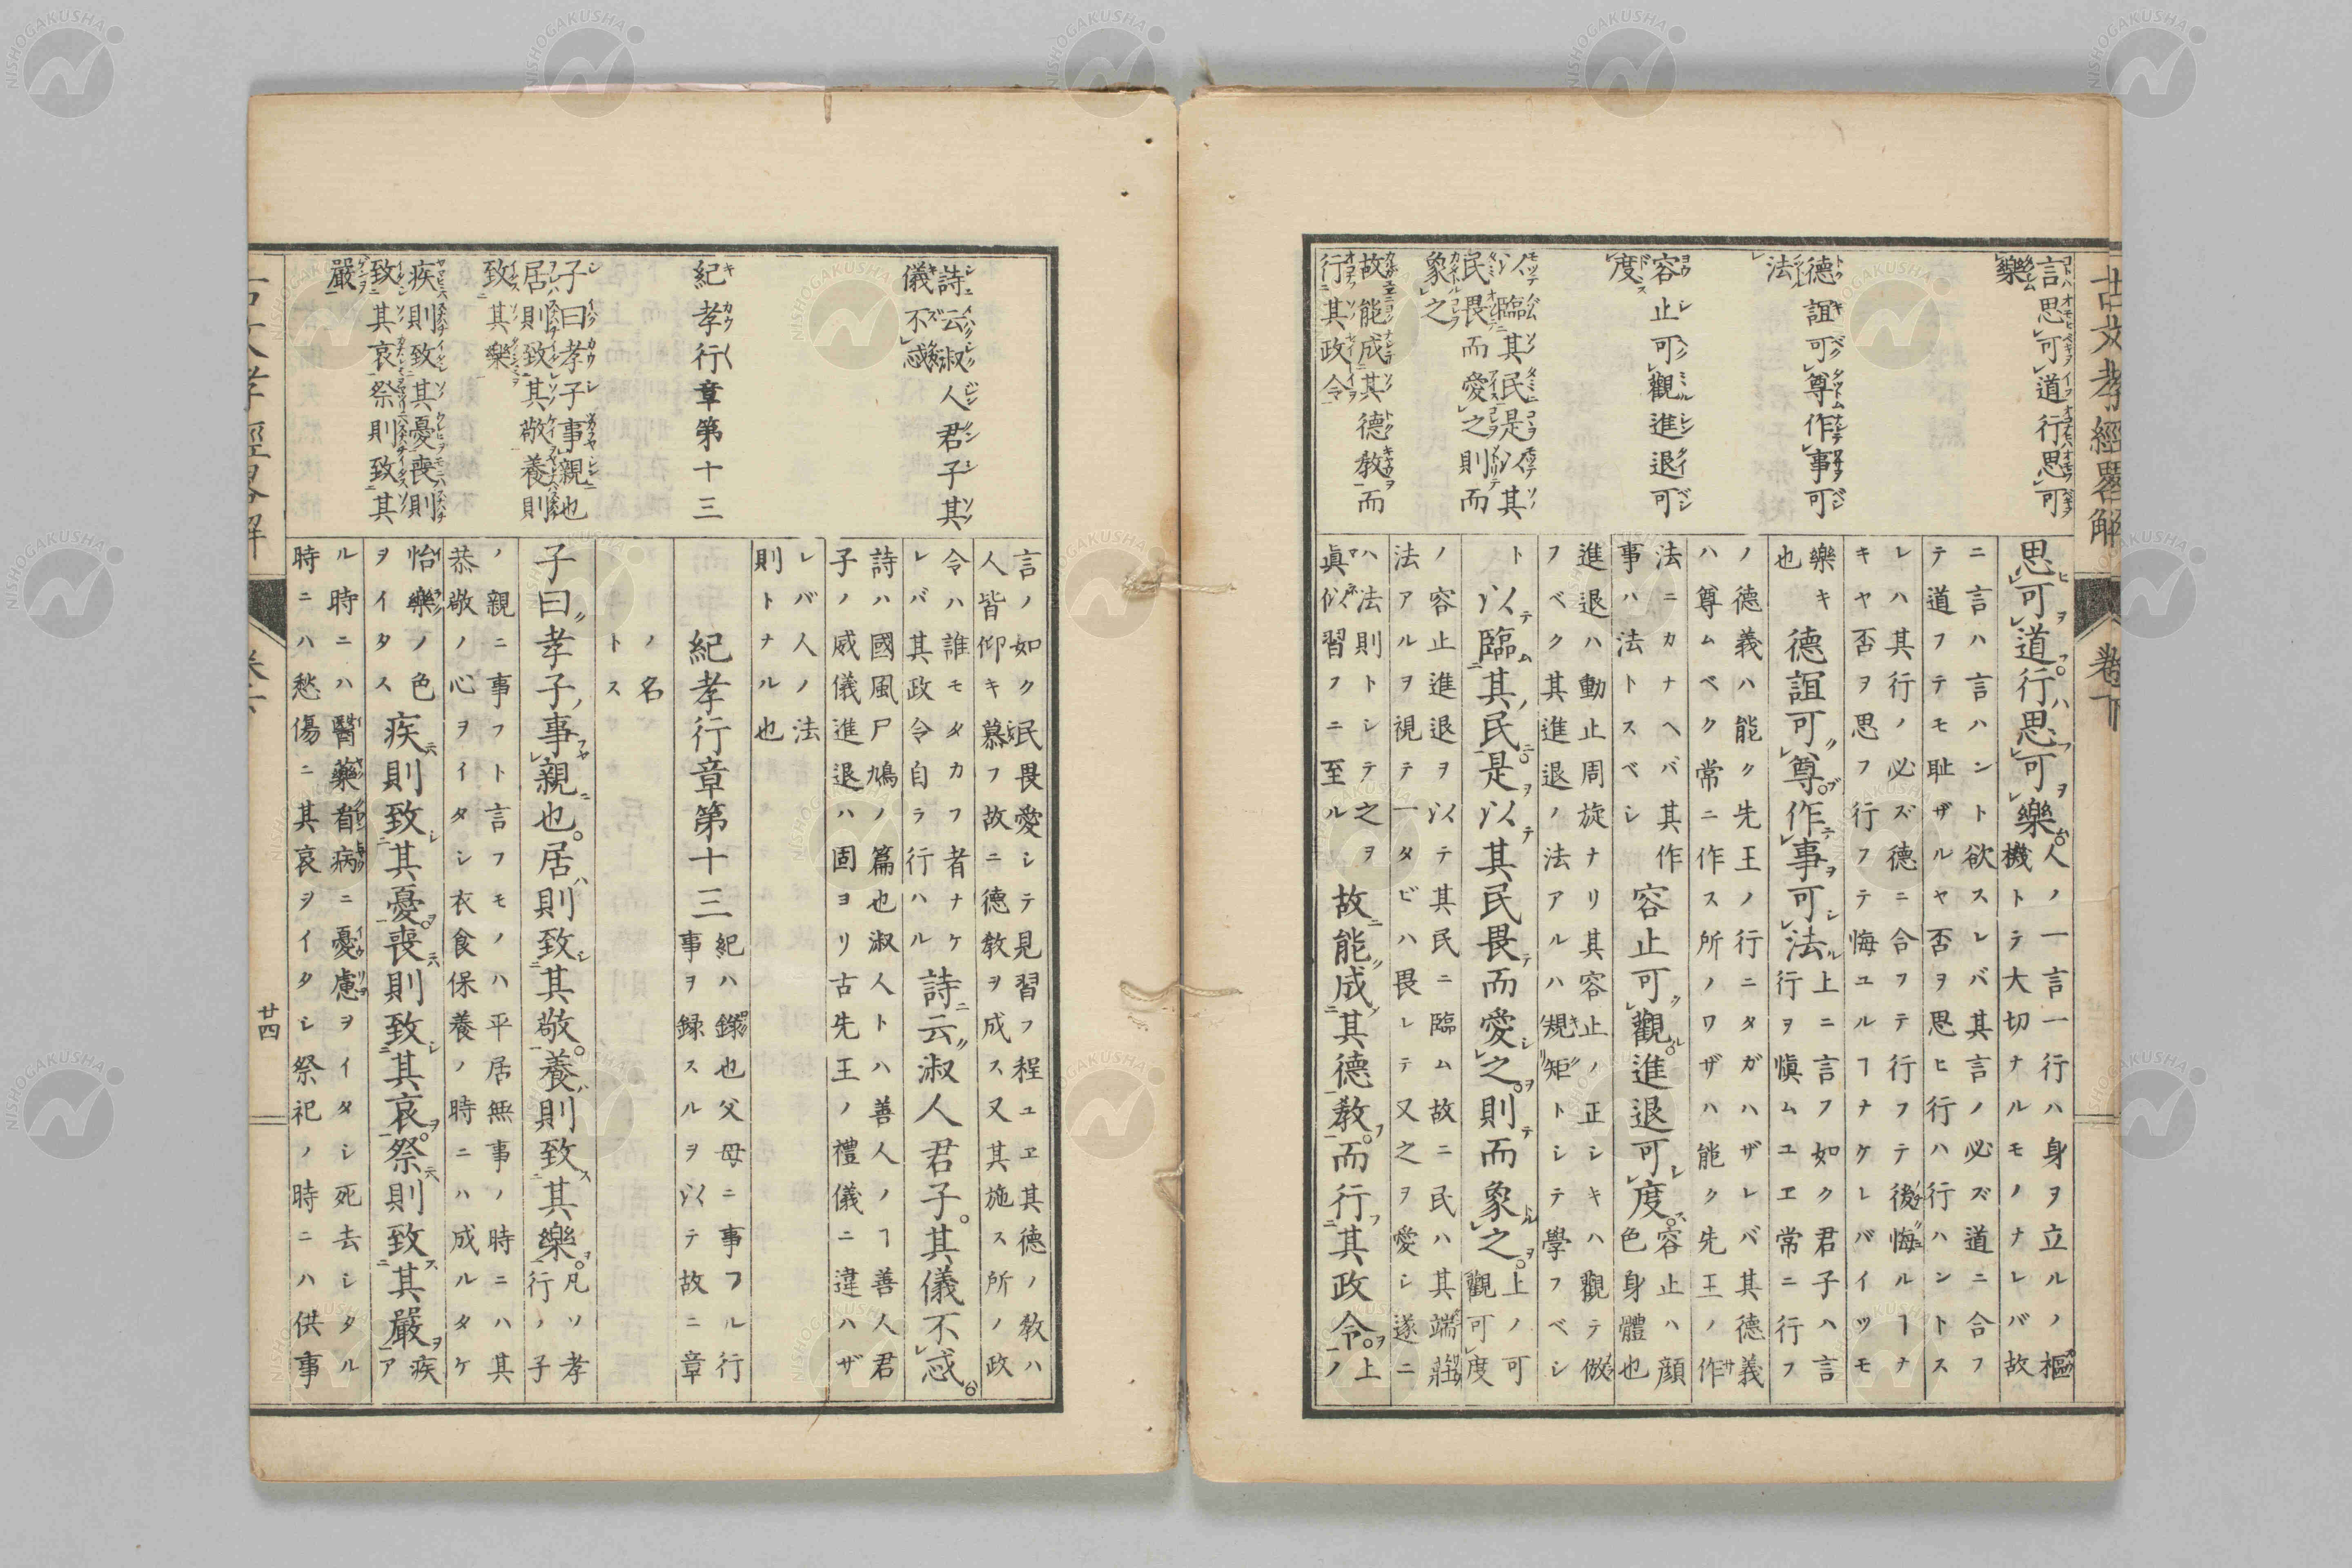 古文孝經畧解
卷下
言思可道行思可
樂
德誼可尊作事可
法
容止可觀進退可
度
以臨其民是以其
民畏而愛之則而
象之
故能成其德教而
行其政令
思可道行思可樂
人ノ一言一行ハ身ヲ立ルノ樞
機トテ大切ナルモノナレバ故
ニ言ハ言ハント欲スレバ其言ノ必ズ道ニ合フ
テ道フテモ耻ザルヤ否ヲ思ヒ行ハ行ハントス
レハ其行ノ必ズ德ニ合フテ行フテ後悔ルヿナ
キヤ否ヲ思フ行フテ悔ユルヿナケレバイツモ
樂キ
也
德誼可尊作事可法
上ニ言フ如ク君子ハ言
行ヲ愼ムユヱ常ニ行フ
ノ德義ハ能ク先王ノ行ニタガハザレバ其德義
ハ尊ムベク常ニ作ス所ノワザハ能ク先王ノ作
法ニカナヘバ其作
事ハ法トスベシ
容止可觀進退可度
容止ハ顔
色身體也
進退ハ動止周旋ナリ其容止ノ正シキハ觀テ倣
フベク其進退ノ法アルハ規矩トシテ學フベシ
ト
以臨其民是以其民畏而愛之則而象之
上ノ可
觀可度
ノ容止進退ヲ以テ其民ニ臨ム故ニ民ハ其端莊
法アルヲ視テ一タビハ畏レテ又之ヲ愛シ遂ニ
ハ法則トシテ之ヲ
眞似習フニ至ル
故能成其德教而行其政令
上
ノ
詩云淑人君子其
儀不忒
紀孝行章第十三
子曰孝子事親也
居則致其敬養則
致其樂
疾則致其憂喪則
致其哀祭則致其
嚴
言ノ如ク民畏愛シテ見習フ程ユヱ其德ノ教ハ
人皆仰キ慕フ故ニ德教ヲ成ス又其施ス所ノ政
令ハ誰モタカフ者ナケ
レバ其政令自ラ行ハル
詩云淑人君子其儀不忒
詩ハ國風尸鳩ノ篇也淑人トハ善人ノヿ善人君
子ノ威儀進退ハ固ヨリ古先王ノ禮儀ニ違ハザ
レバ人ノ法
則トナル也
紀孝行章第十三
紀ハ錄也父母ニ事フル行
事ヲ録スルヲ以テ故ニ章
ノ名
トス
子曰孝子事親也居則致其敬養則致其樂
凡ソ孝
行ノ子
ノ親ニ事フト言フモノハ平居無事ノ時ニハ其
恭敬ノ心ヲイタシ衣食保養ノ時ニハ成ルタケ
怡樂ノ色
ヲイタス
疾則致其憂喪則致其哀祭則致其嚴
疾
ア
ル時ニハ醫藥看病ニ憂慮ヲイタシ死去シタル
時ニハ愁傷ニ其哀ヲイタシ祭祀ノ時ニハ供事
廿四
NISHOGAKUSHA